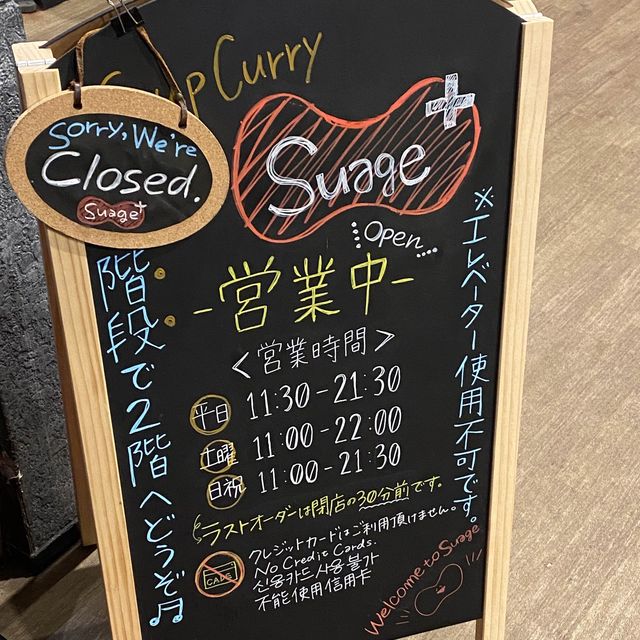 Soup Curry
Sorry, We're
Closed.
Suage+
Suage+
Open
-営業中-
<営業時間>
平日 11:30-21:30
土曜 11:00-22:00
日祝 11:00-21:30
ラストオーダーは閉店の30分前です。
クレジットカードはご利用頂けません。
No Credit Cards.
신용카드 사용 불가
不能使用信用卡
CARD
Welcome to Suage
階段で2階へどうぞ♫
※エレベーター使用不可です。